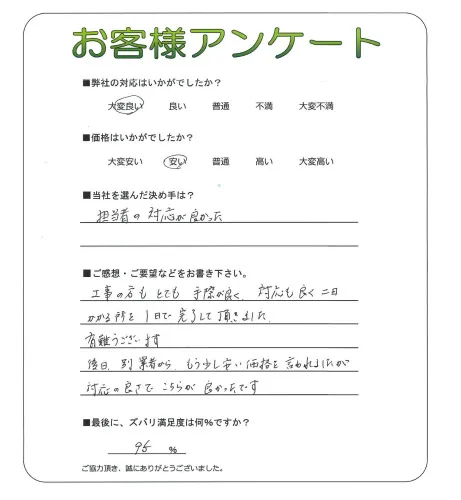 お客様アンケート
■弊社の対応はいかがでしたか？
大変良い 良い 普通 不満 大変不満
■価格はいかがでしたか？
大変安い 安い 普通 高い 大変高い
■当社を選んだ決め手は？
担当者の対応が良かった
■ご感想・ご要望などをお書き下さい。
工事の方も とても 手際が良く、対応も良く 二日
かかる所を 1日で 完了して 頂きました
有難うございます
後日、別業者から、もう少し安い価格を 言われましたが
対応の良さで こちらが 良かったです
■最後に、ズバリ満足度は何％ですか？
95 ％
ご協力頂き、誠にありがとうございました。